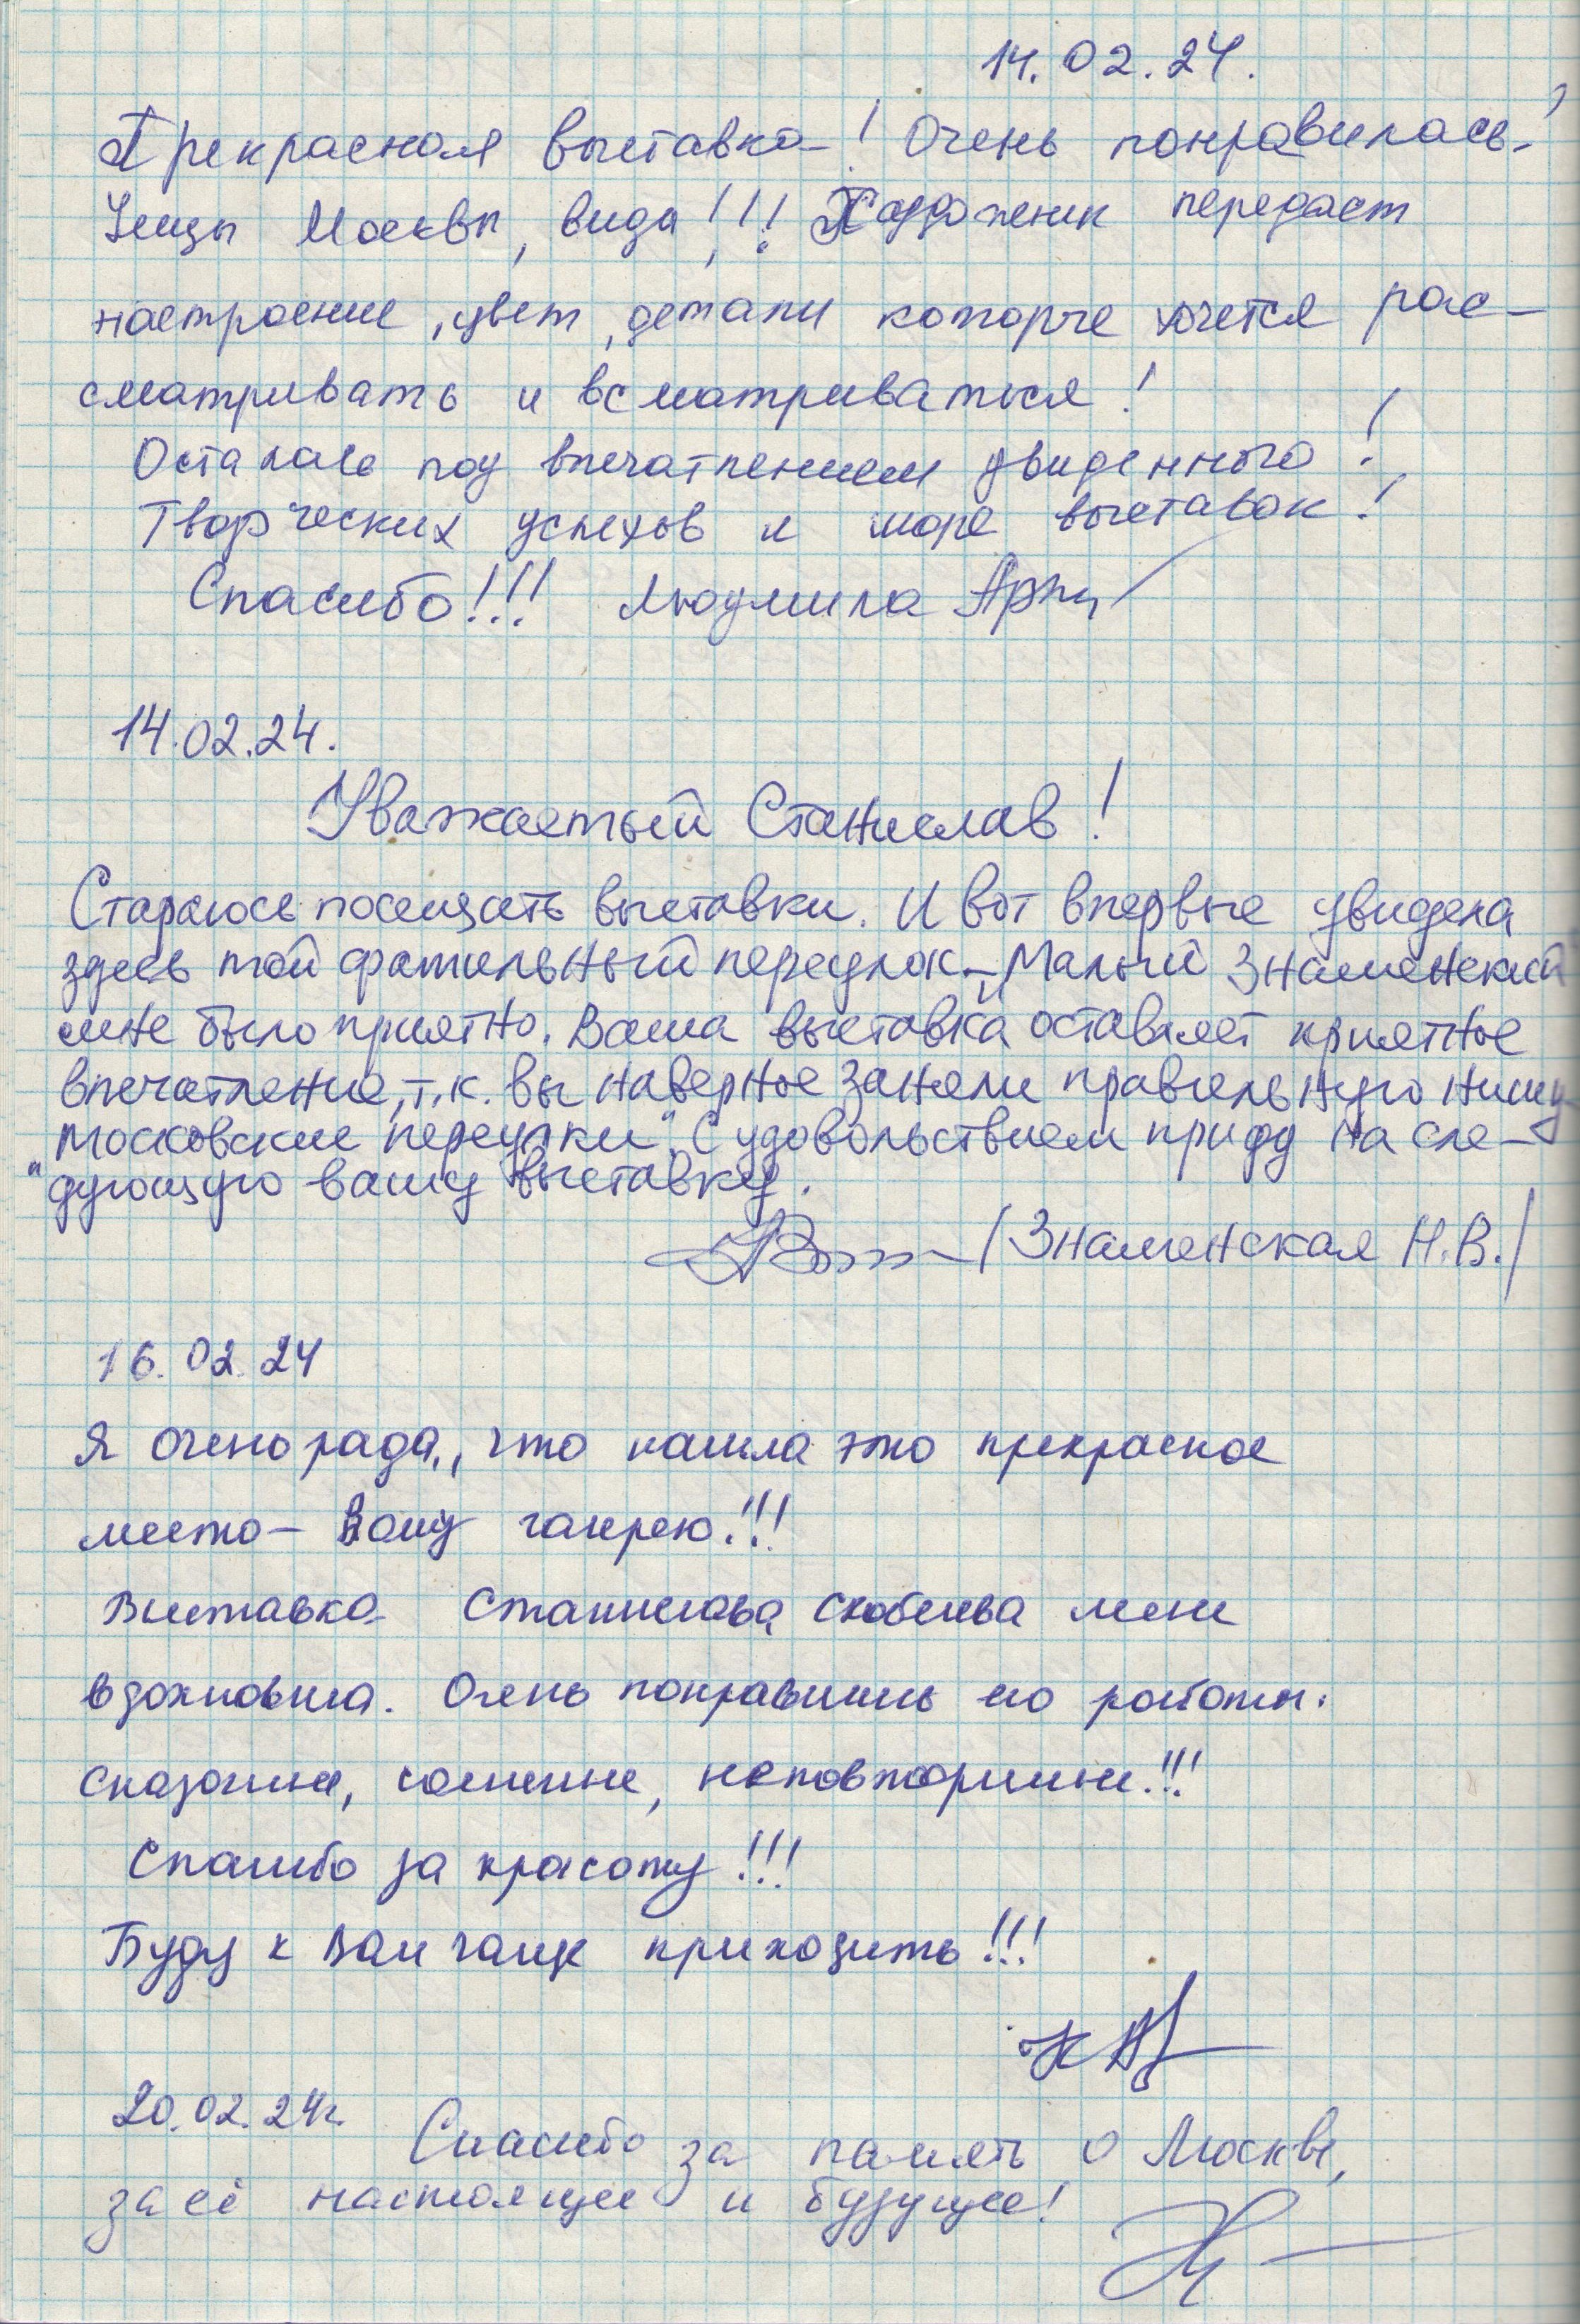 14.02.24.
Прекрасная выставка! Очень понравилась!
Улицы Москвы, виды!!! Художник передает
настроение, цвет, детали которые хочется рас-
сматривать и всматриваться!
Осталась под впечатлением увиденного!
Творческих успехов и море выставок!
Спасибо!!! Людмила
14.02.24.
Уважаемый Станислав!
Стараюсь посещать выставки. И вот впервые увидела
здесь мой фамильный переулок - "Малый Знаменский
мне было приятно. Ваша выставка оставляет приятное
впечатление, т.к. вы наверное заняли правильную нишу
"московские переулки". С удовольствием приду на сле-
дующую вашу выставку.
/Знаменская Н.В./
16.02.24
Я очень рада, что нашла это прекрасное
место - Вашу галерею!!!
Выставка Станислава Скобелева меня
вдохновила. Очень понравились его работы:
сказочные, солнечные, неповторимые!!!
Спасибо за красоту!!!
Буду к Вам чаще приходить!!!
20.02.24г.
Спасибо за память о Москве,
за её настоящее и будущее!